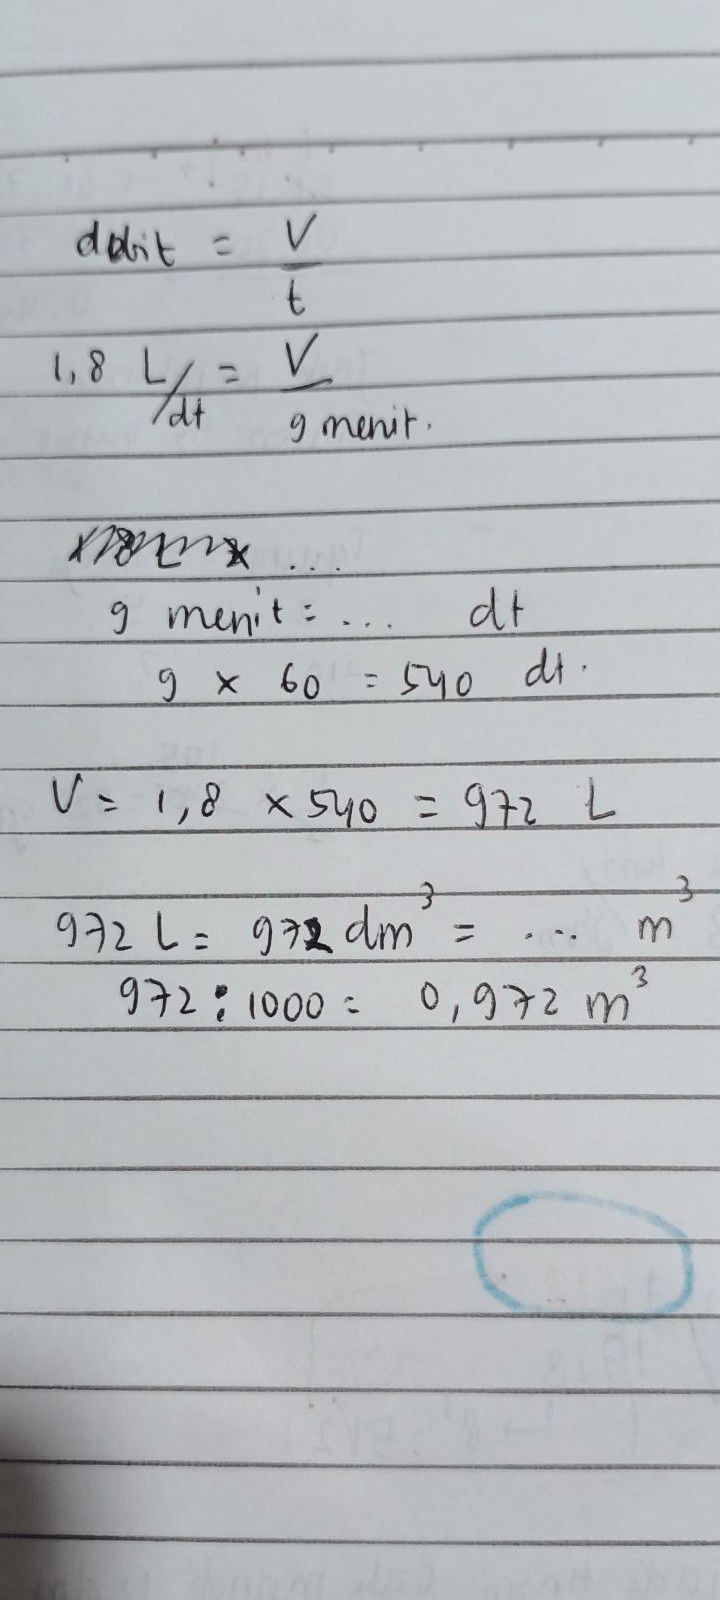 debit = V
t
1,8 L/dt = V
9 menit.
...
9 menit = ... dt
9 x 60 = 540 dt.
V = 1,8 x 540 = 972 L
972 L = 972 dm³ = ... m³
972 : 1000 = 0,972 m³